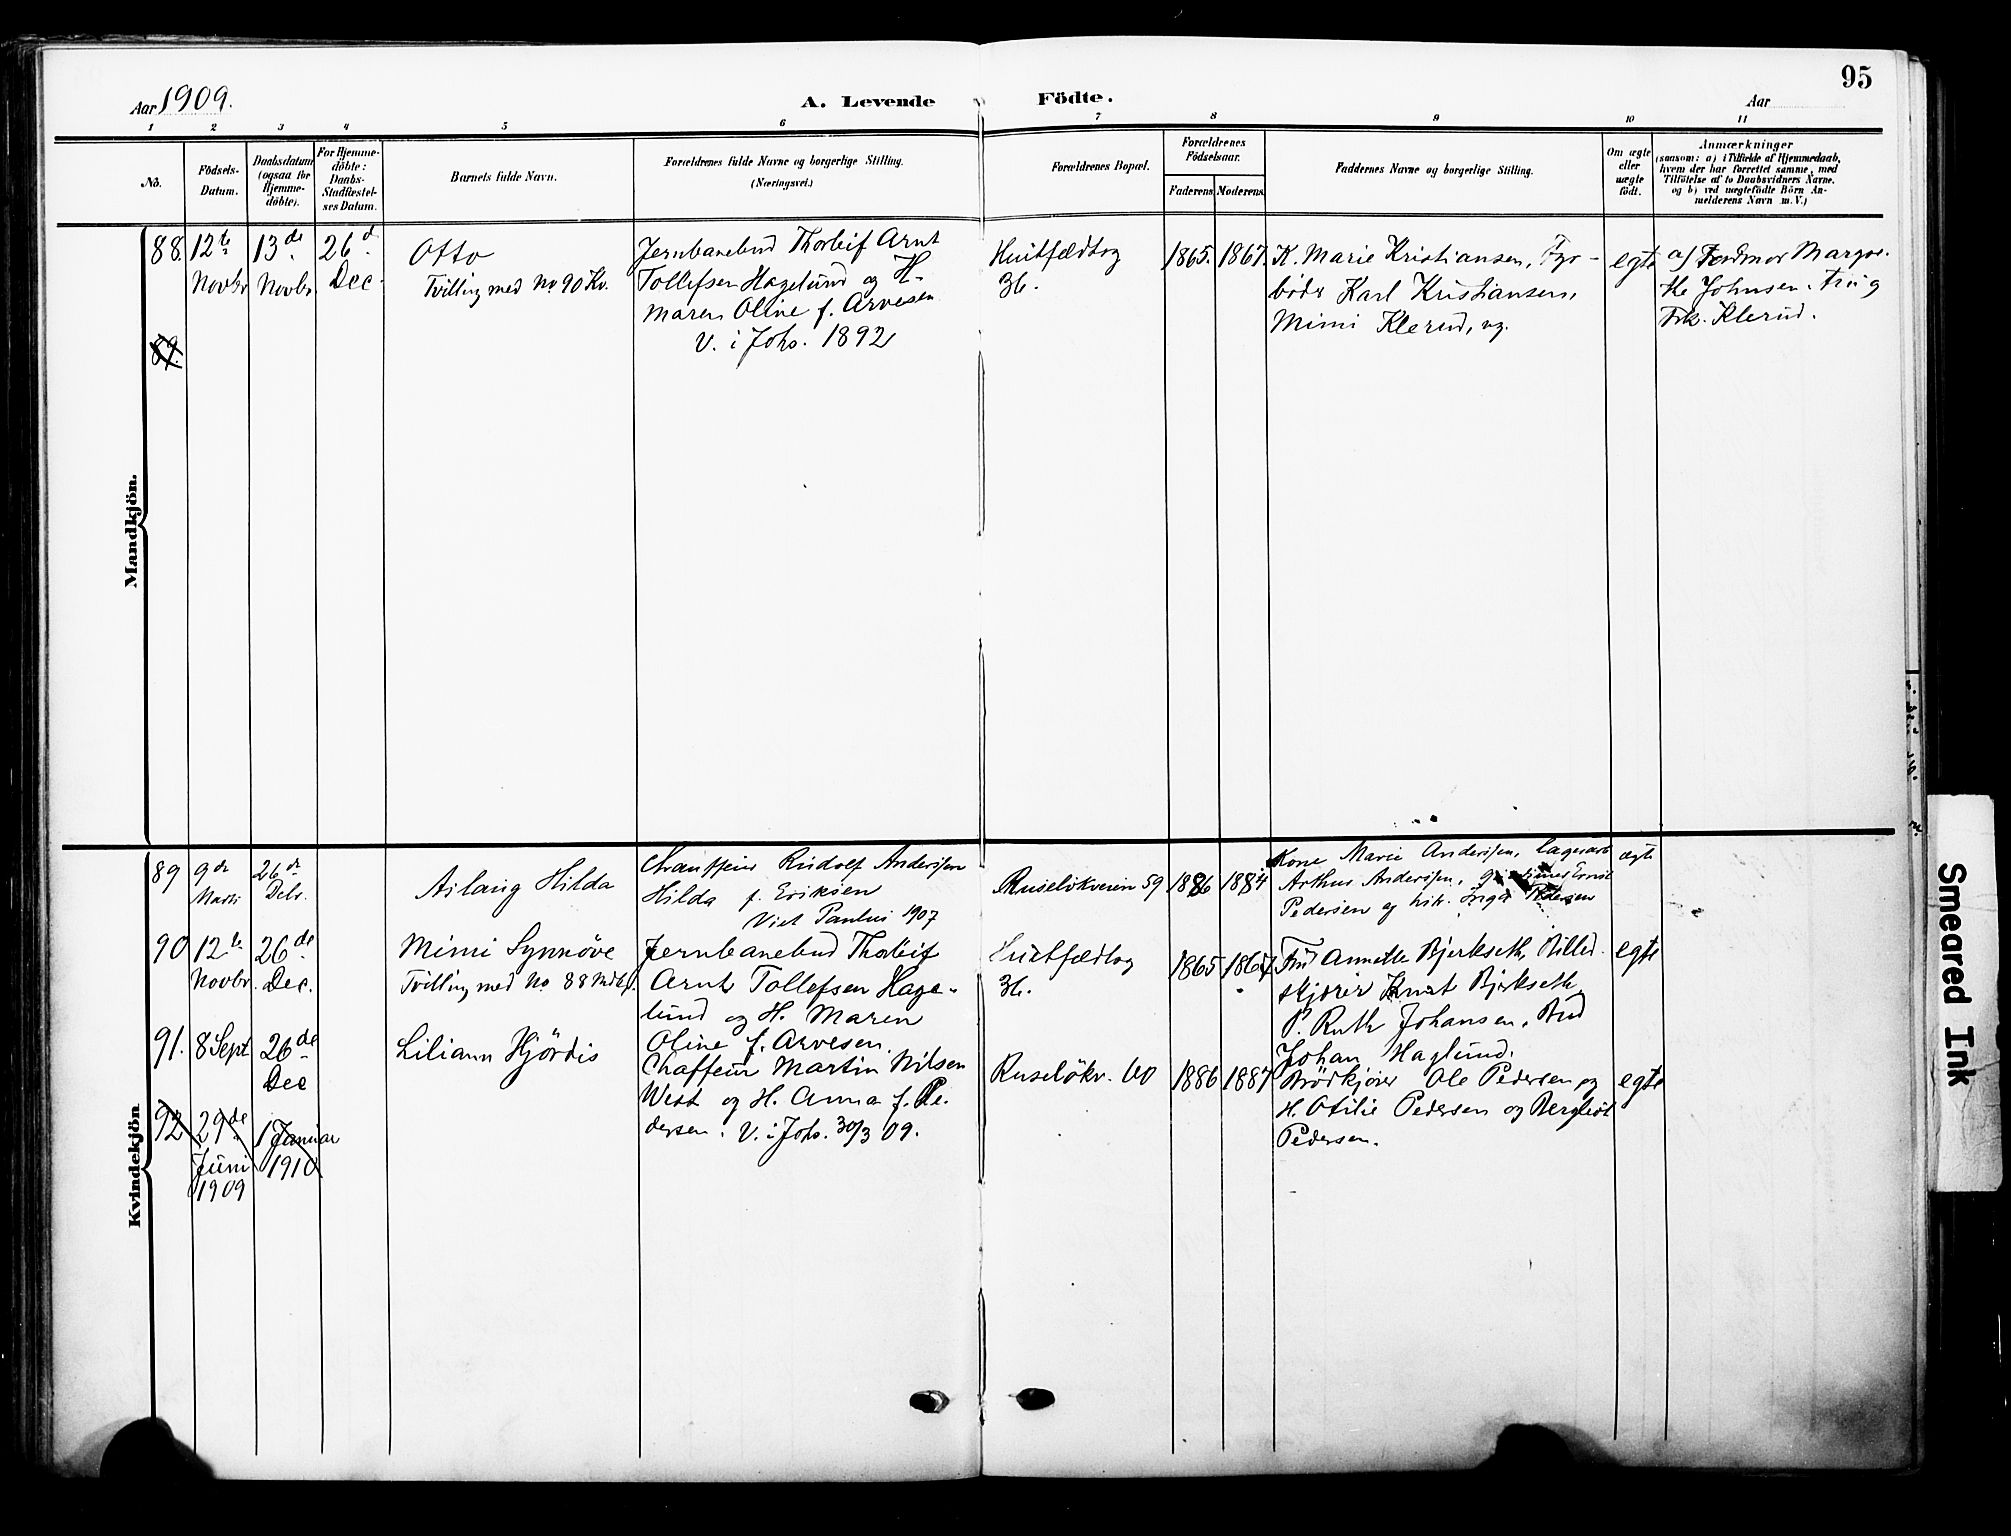 95
Aar 1909.
A. Levende Födte.
Aar
1 2 3 4 5 6 7 8 9 10 11
No.
Födsels-Datum.
Daabsdatum (ogsaa for Hjemme-döbte).
For Hjemme-döbte: Daabs-Stadfæstel-ses Datum.
Barnets fulde Navn.
Forældrenes fulde Navne og borgerlige Stilling.
(Næringsvei.)
Forældrenes Bopæl.
Forældrenes Födselsaar.
Faderens. Moderens.
Faddernes Navne og borgerlige Stilling.
Om ægte eller uægte födt.
Anmærkninger
(saasom: a) i Tilfælde af Hjemmedaab,
hvem der har forrettet samme, med
Tilföielse af to Daabsvidners Navne.
og b) ved uægtefödte Börn An-
melderens Navn m. V.)
Mandkjön.
88. 12te Novbr 13de Novbr. 26d. Dec.
Otto
Tvilling med No 90 Kv.
Jernbanebud Thorleif Arnt
Tollefsen Hagelund og H.
Maren Oline f. Arvesen
V. i Johs. 1892
Huitfædtsg
36.
1865. 1867.
K. Marie Kristiansen, Fyr-
böder Karl Kristiansen,
Mimi Klerud, ug.
egte
af Jordmor Margre-
the Johnsen. Fru og
Frk. Klerud.
89.
Kvindekjön
89 9de Marts 26de Debr.
Aslaug Hilda
Rudolf Andersen
Hilda f. Eriksen
Viet Paulus 1907
Ruselökveien 59
1886 1884
Kone Marie Andersen,
Arthur Andersen, Ernst
Pedersen og Inga Pedersen
ægte
90 12te Novbr. 26de Dec.
Mimi Synnöve
Tvilling med No 88 Mdkj.
Jernbanebud Thorleif
Arnt Tollefsen Hage-
lund og H. Maren
Oline f. Arvesen.
Huitfædtsg
36.
1865 1867
Fru Annette Bjerkseth, Billed-
skjærer Knut Bjerkseth
P. Ruth Johansen, Bud
Johan Haglund.
egte
91. 8 Sept 26de Dec
Liliann Hjördis
Chaffeur Martin Nilsen
West og H. Anna f. Pe-
dersen. V. i Johs. 30/3 09.
Ruselökv. 60
1886 1887
Brödkjörer Ole Pedersen og
H. Otilie Pedersen og Bergliot
Pedersen.
egte
92 29de Juni 1909 1 Januar 1910
Smeared Ink